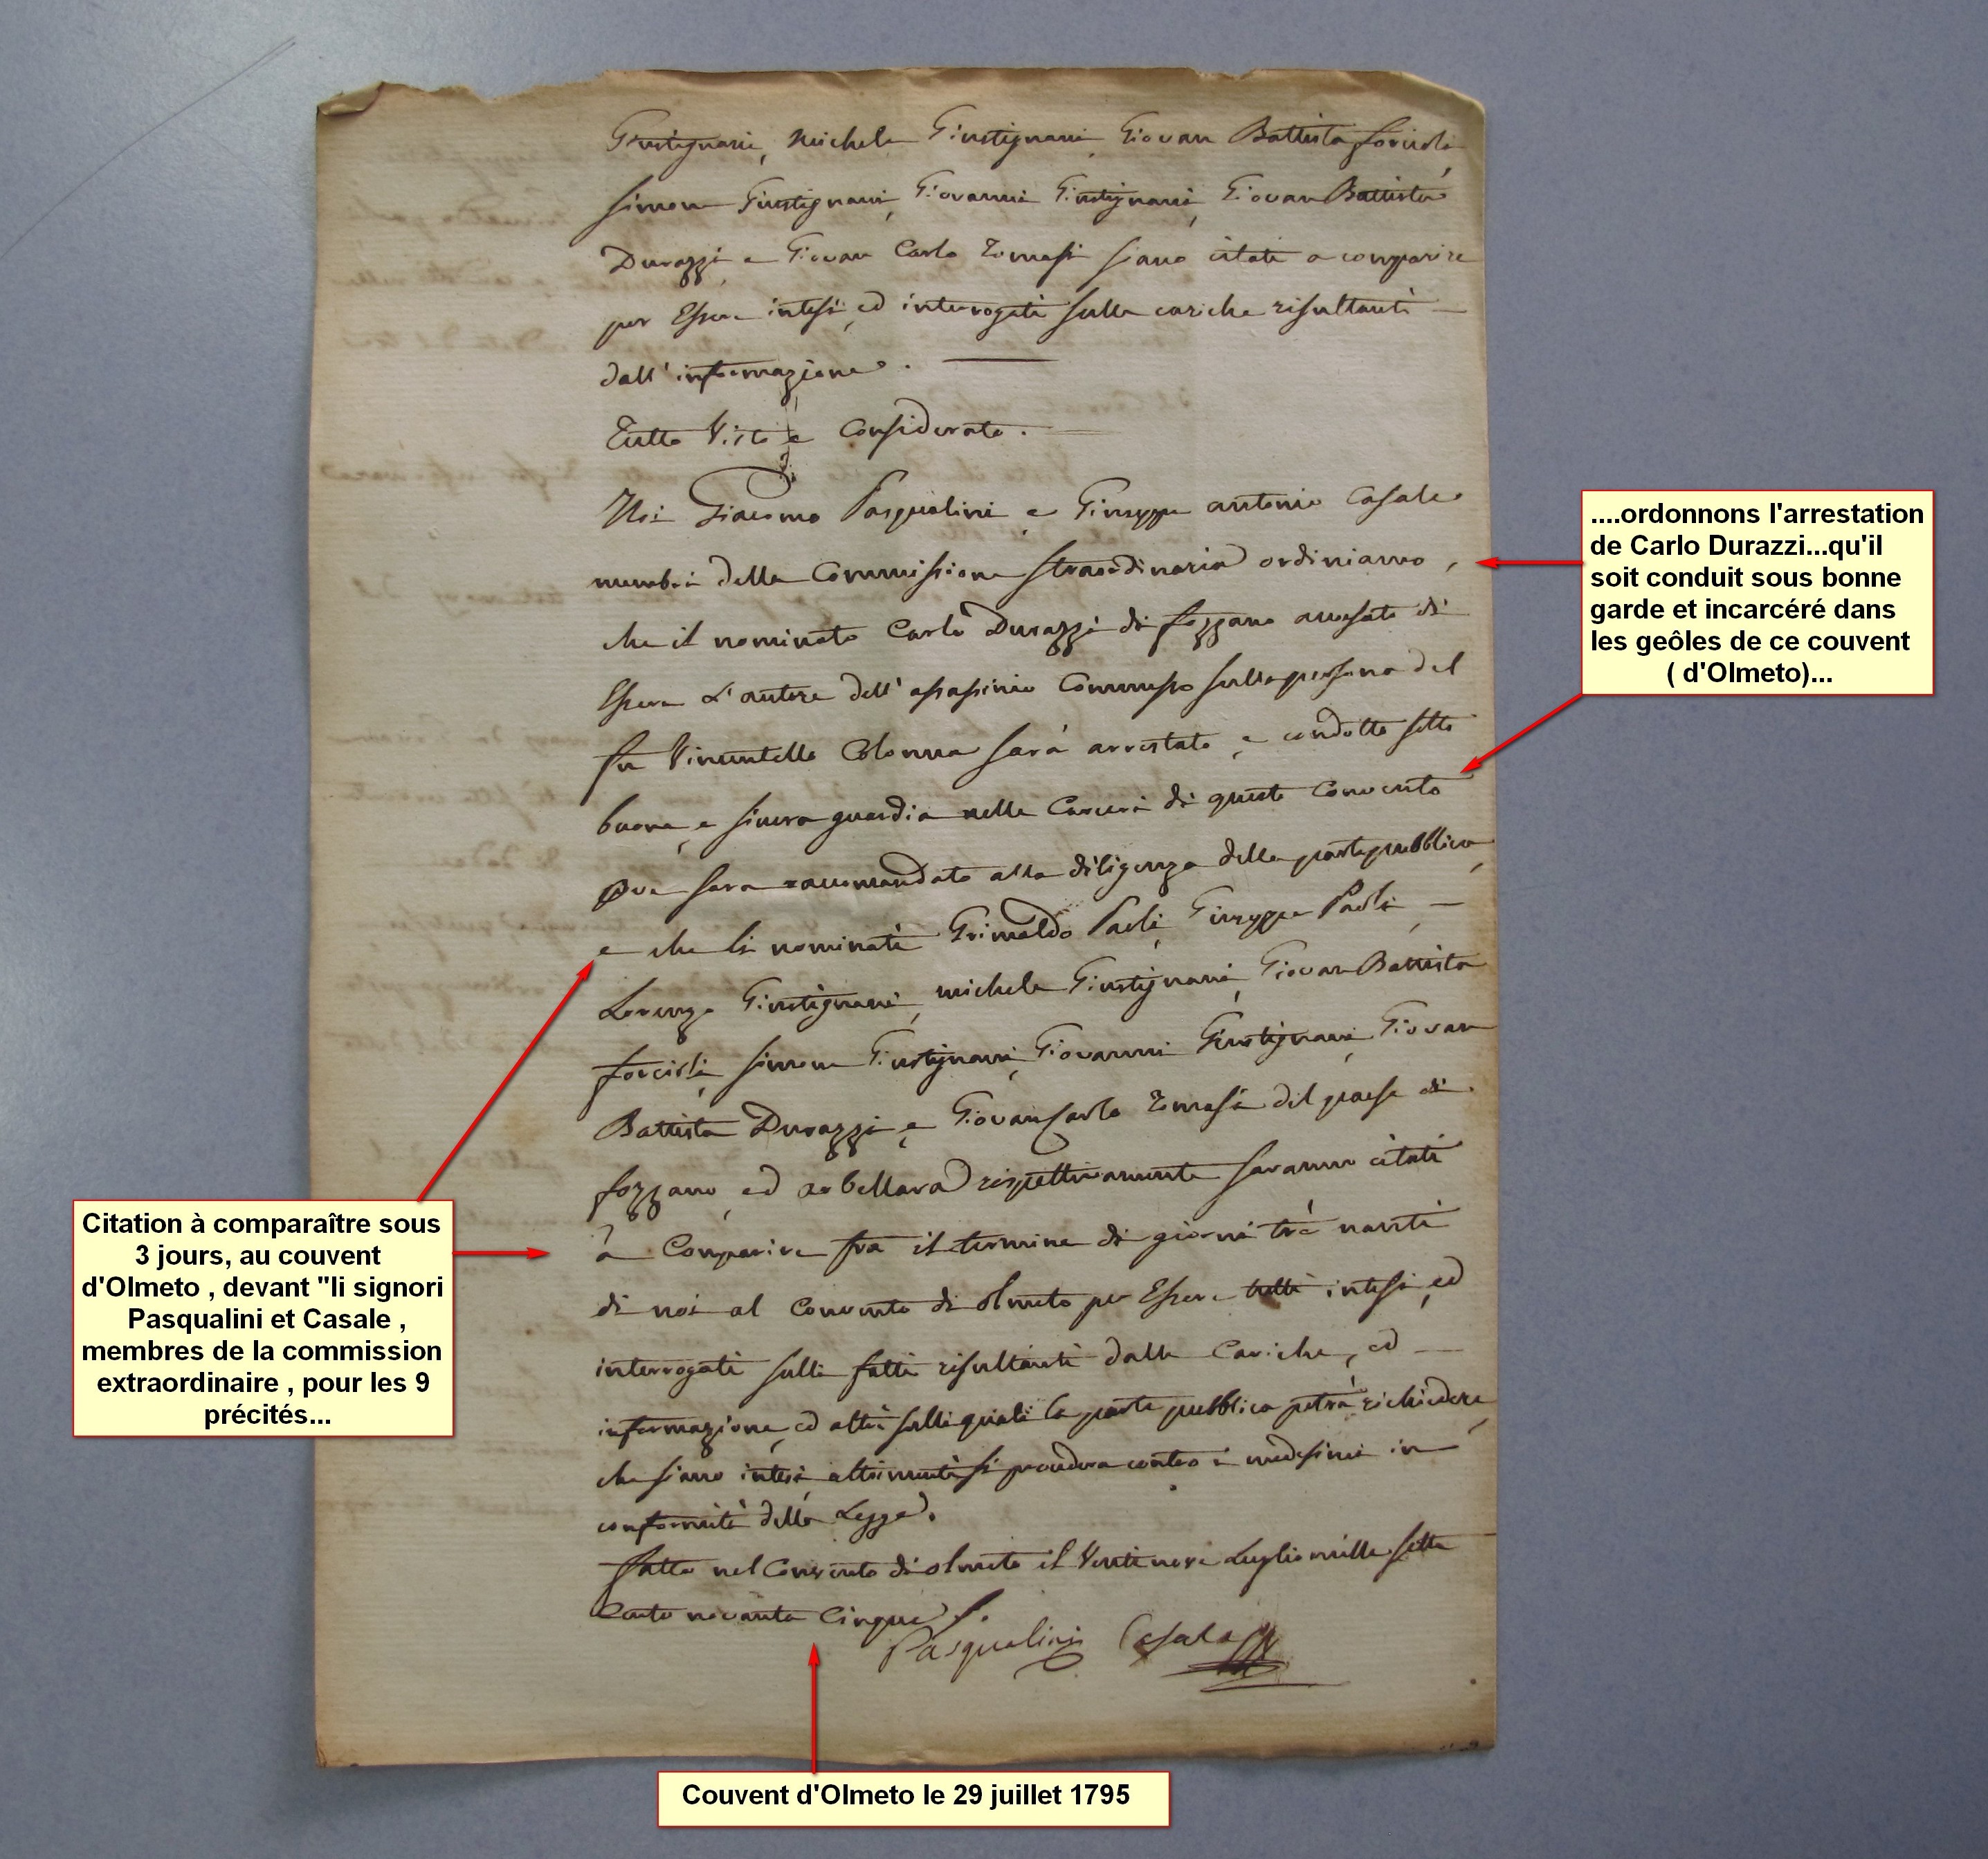 Giustignani, Michele Giustignani, Giovan Battista forcioli,
simone Giustignani, Giovanni Giustignani, Giovan Battista
Durazzi e Giovan Carlo Tomasi siano citati a comparire
per Essere intesi, ed interrogati sulle cariche risultanti —
dall'informazione. —
Tutto Visto e Considerato. —
Noi Giacomo Pasqualini e Giuseppe antonio Casale
membri della Commissione straordinaria ordiniamo,
che il nominato Carlo Durazzi di fozzano accusato di
Essere L'autore dell'assassinio Commesso sulla persona del
fu Vincentello Colonna sarà arrestato, e condotto sotto
buona, e sicura guardia nelle Carceri di questo Convento
Ove sara racomandato alla diligenza della parte pubblica,
e che li nominati Grimaldo Paoli, Giuseppe Paoli, —
Lorenzo Giustignani, michele Giustignani, Giovan Battista
forcioli, simone Giustignani, Giovanni Giustignani, Giovan
Battista Durazzi, e Giovan Carlo Tomasi del paese di
fozzano, ed arbellara rispettivamente saranno citati
à Comparire fra il termine di giorni trè nanti
di noi al Convento di olmeto per Essere intesi, ed
interrogati sulli fatti risultanti dalle Cariche, ed —
informazione, ed altri sulli quali la parte pubblica potrà richiedere,
che siano intesi, altrimenti si procederà contro i medesimi in
conformità della Legge.
fatto nel Convento di olmeto il Ventinove Luglio mille sette
Cento novanta Cinque
Pasqualini Casale
....ordonnons l'arrestation
de Carlo Durazzi...qu'il
soit conduit sous bonne
garde et incarcéré dans
les geôles de ce couvent
( d'Olmeto)...
Citation à comparaître sous
3 jours, au couvent
d'Olmeto , devant "li signori
Pasqualini et Casale ,
membres de la commission
extraordinaire , pour les 9
précités...
Couvent d'Olmeto le 29 juillet 1795